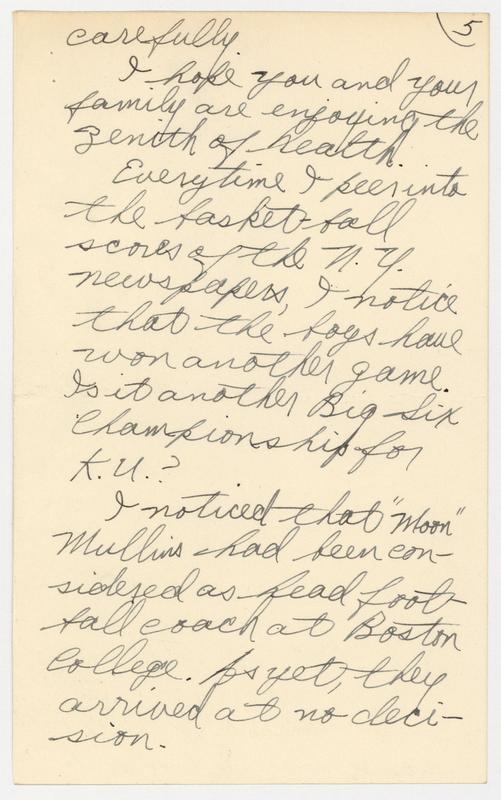 5
carefully.
I hope you and your
family are enjoying the
zenith of health.
Everytime I peer into
the basket-ball
scores of the N.Y.
newspapers, I notice
that the boys have
won another game.
Is it another Big Six
Championship for
K.U.?
I noticed that "Moon"
Mullins had been con-
sidered as head foot-
ball coach at Boston
College. As yet, they
arrived at no deci-
sion.